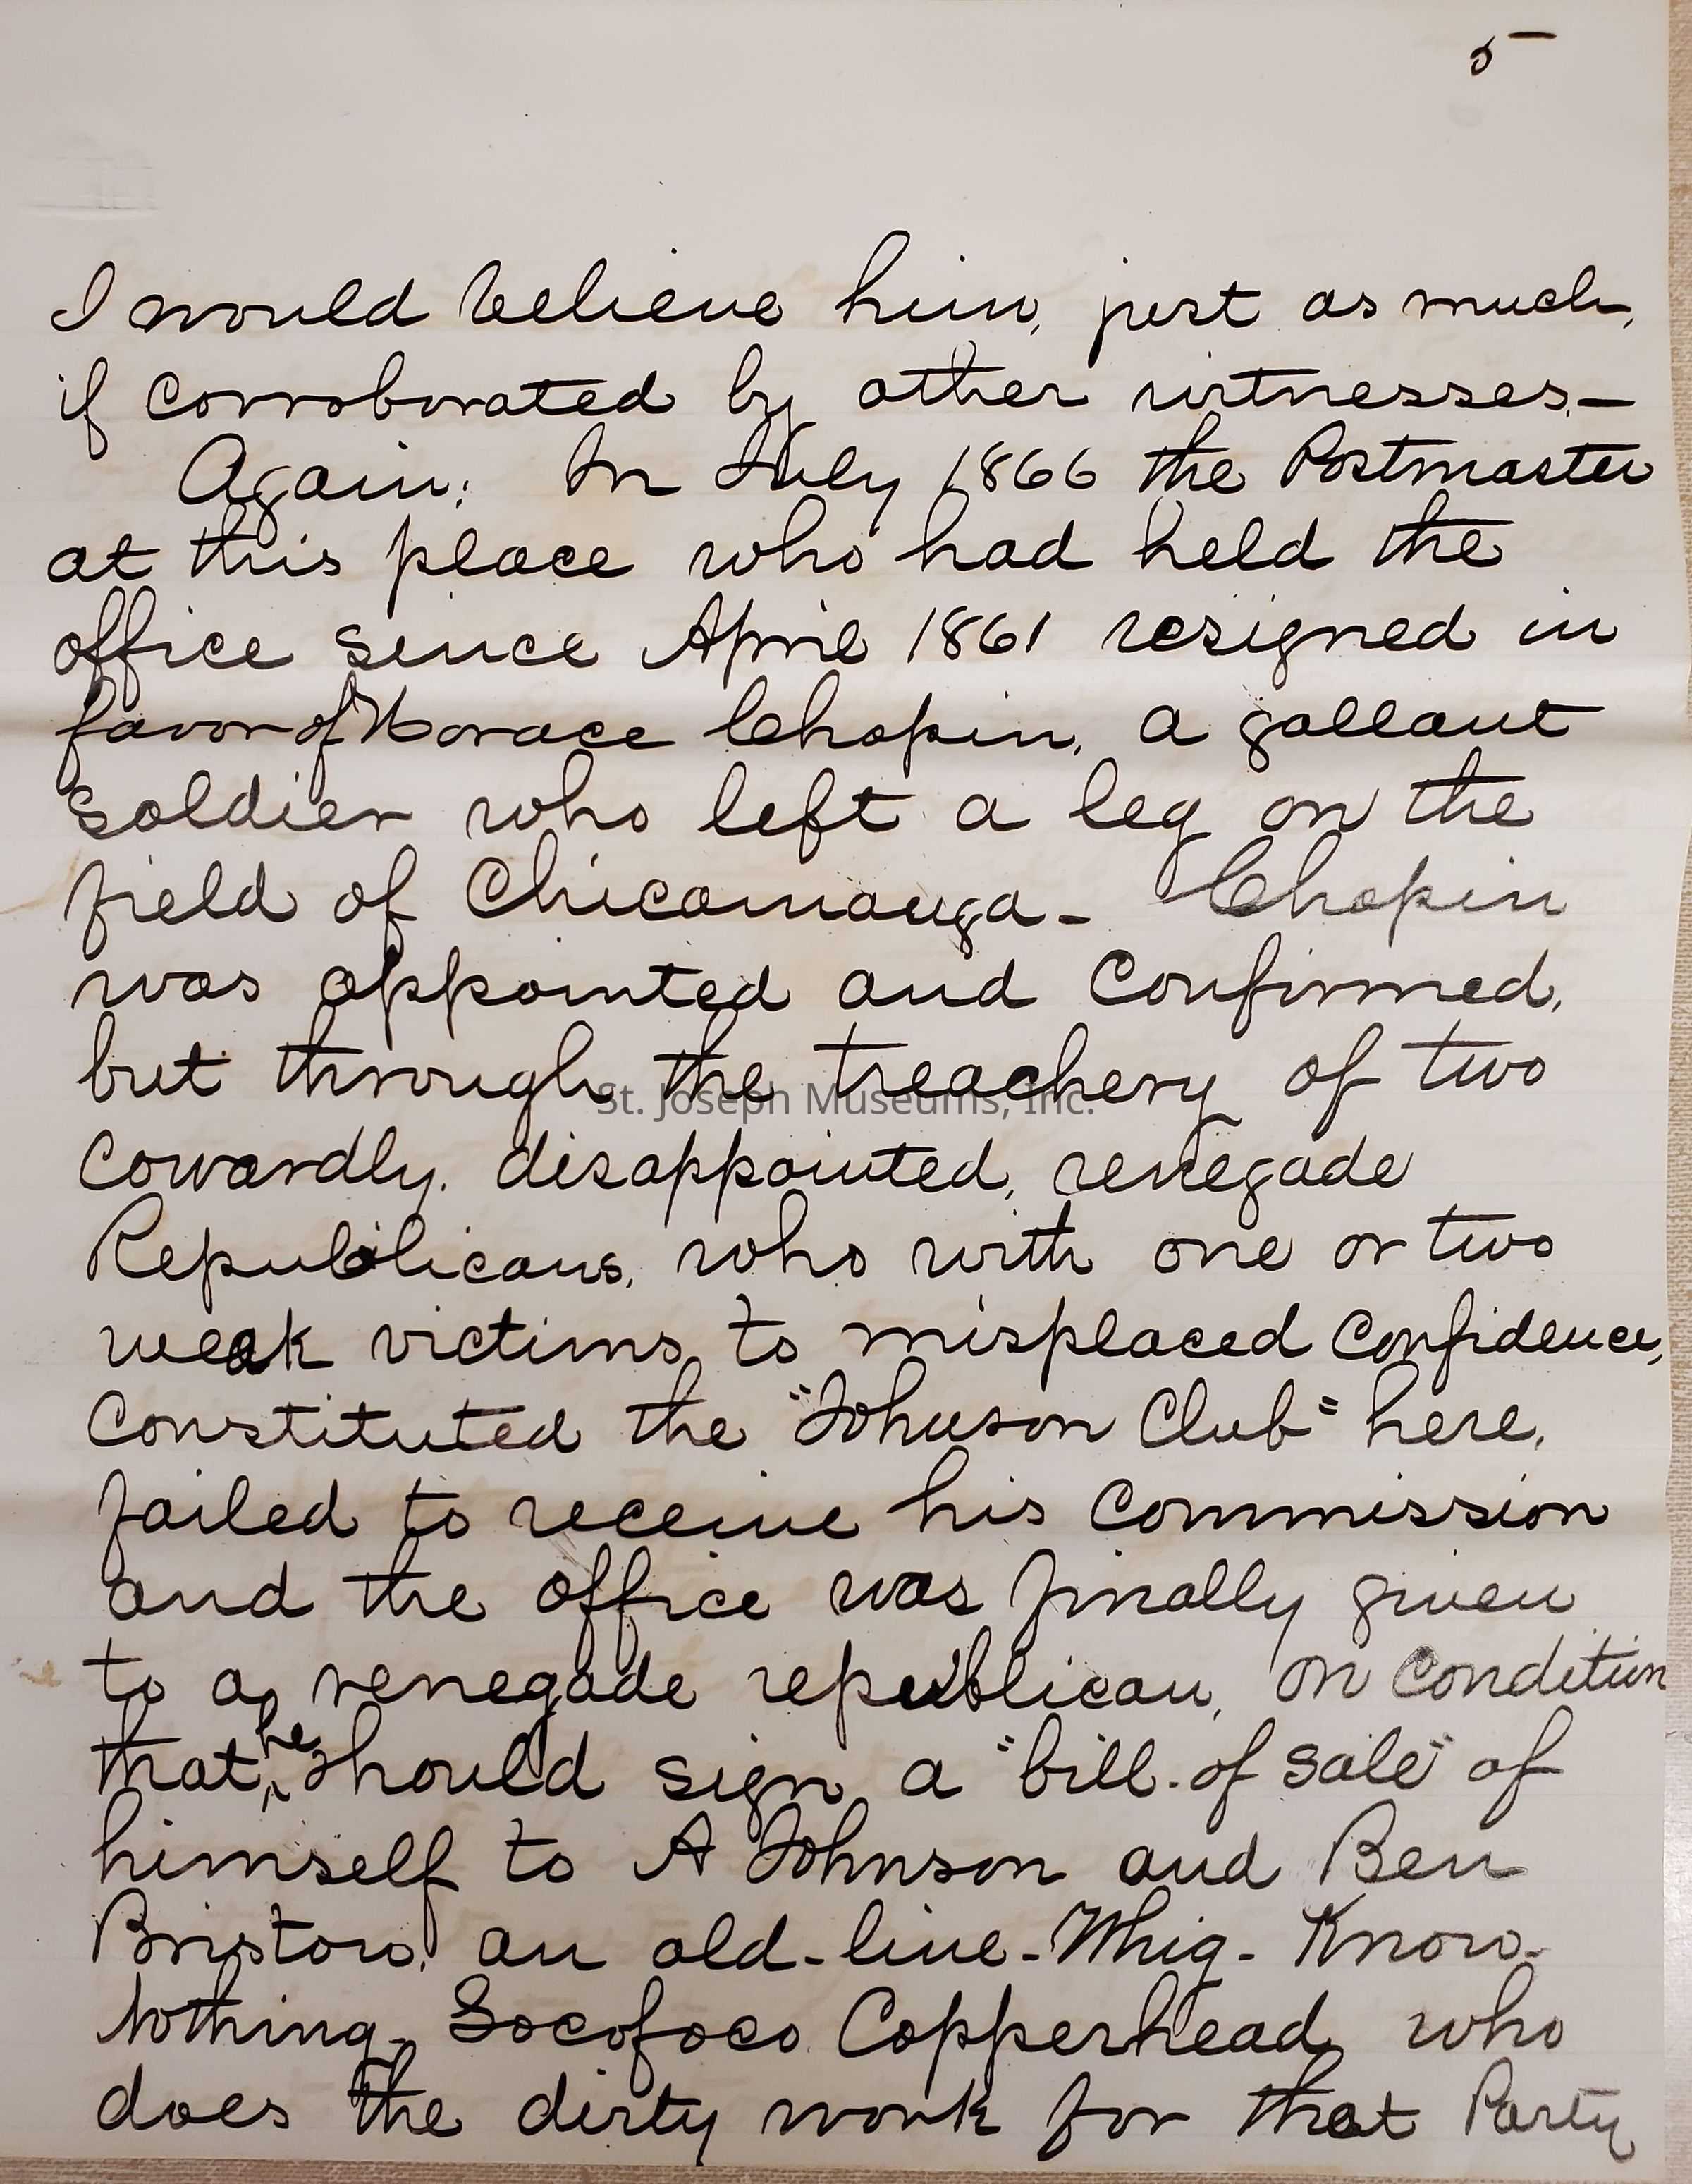 5
I would believe him, just as much,
if corroborated by other witnesses.—
Again; In July 1866 the Postmaster
at this place who had held the
office since April 1861 resigned in
favor of Horace Chapin, a gallant
soldier who left a leg on the
field of Chicamauga - Chapin
was appointed and Confirmed,
but through the treachery of two
St. Joseph Museums, Inc.
Cowardly, disappointed, renegade
Republicans, who with one or two
weak victims to misplaced Confidence,
Constituted the "Johnson Club" here,
failed to receive his Commission
and the office was finally given
to a renegade republican, on Condition
that he should sign a "bill-of sale" of
himself to A Johnson and Ben
Bristow, an old-line-Whig-Know-
Nothing-Locofoco Copperhead, who
does the dirty work for that Party